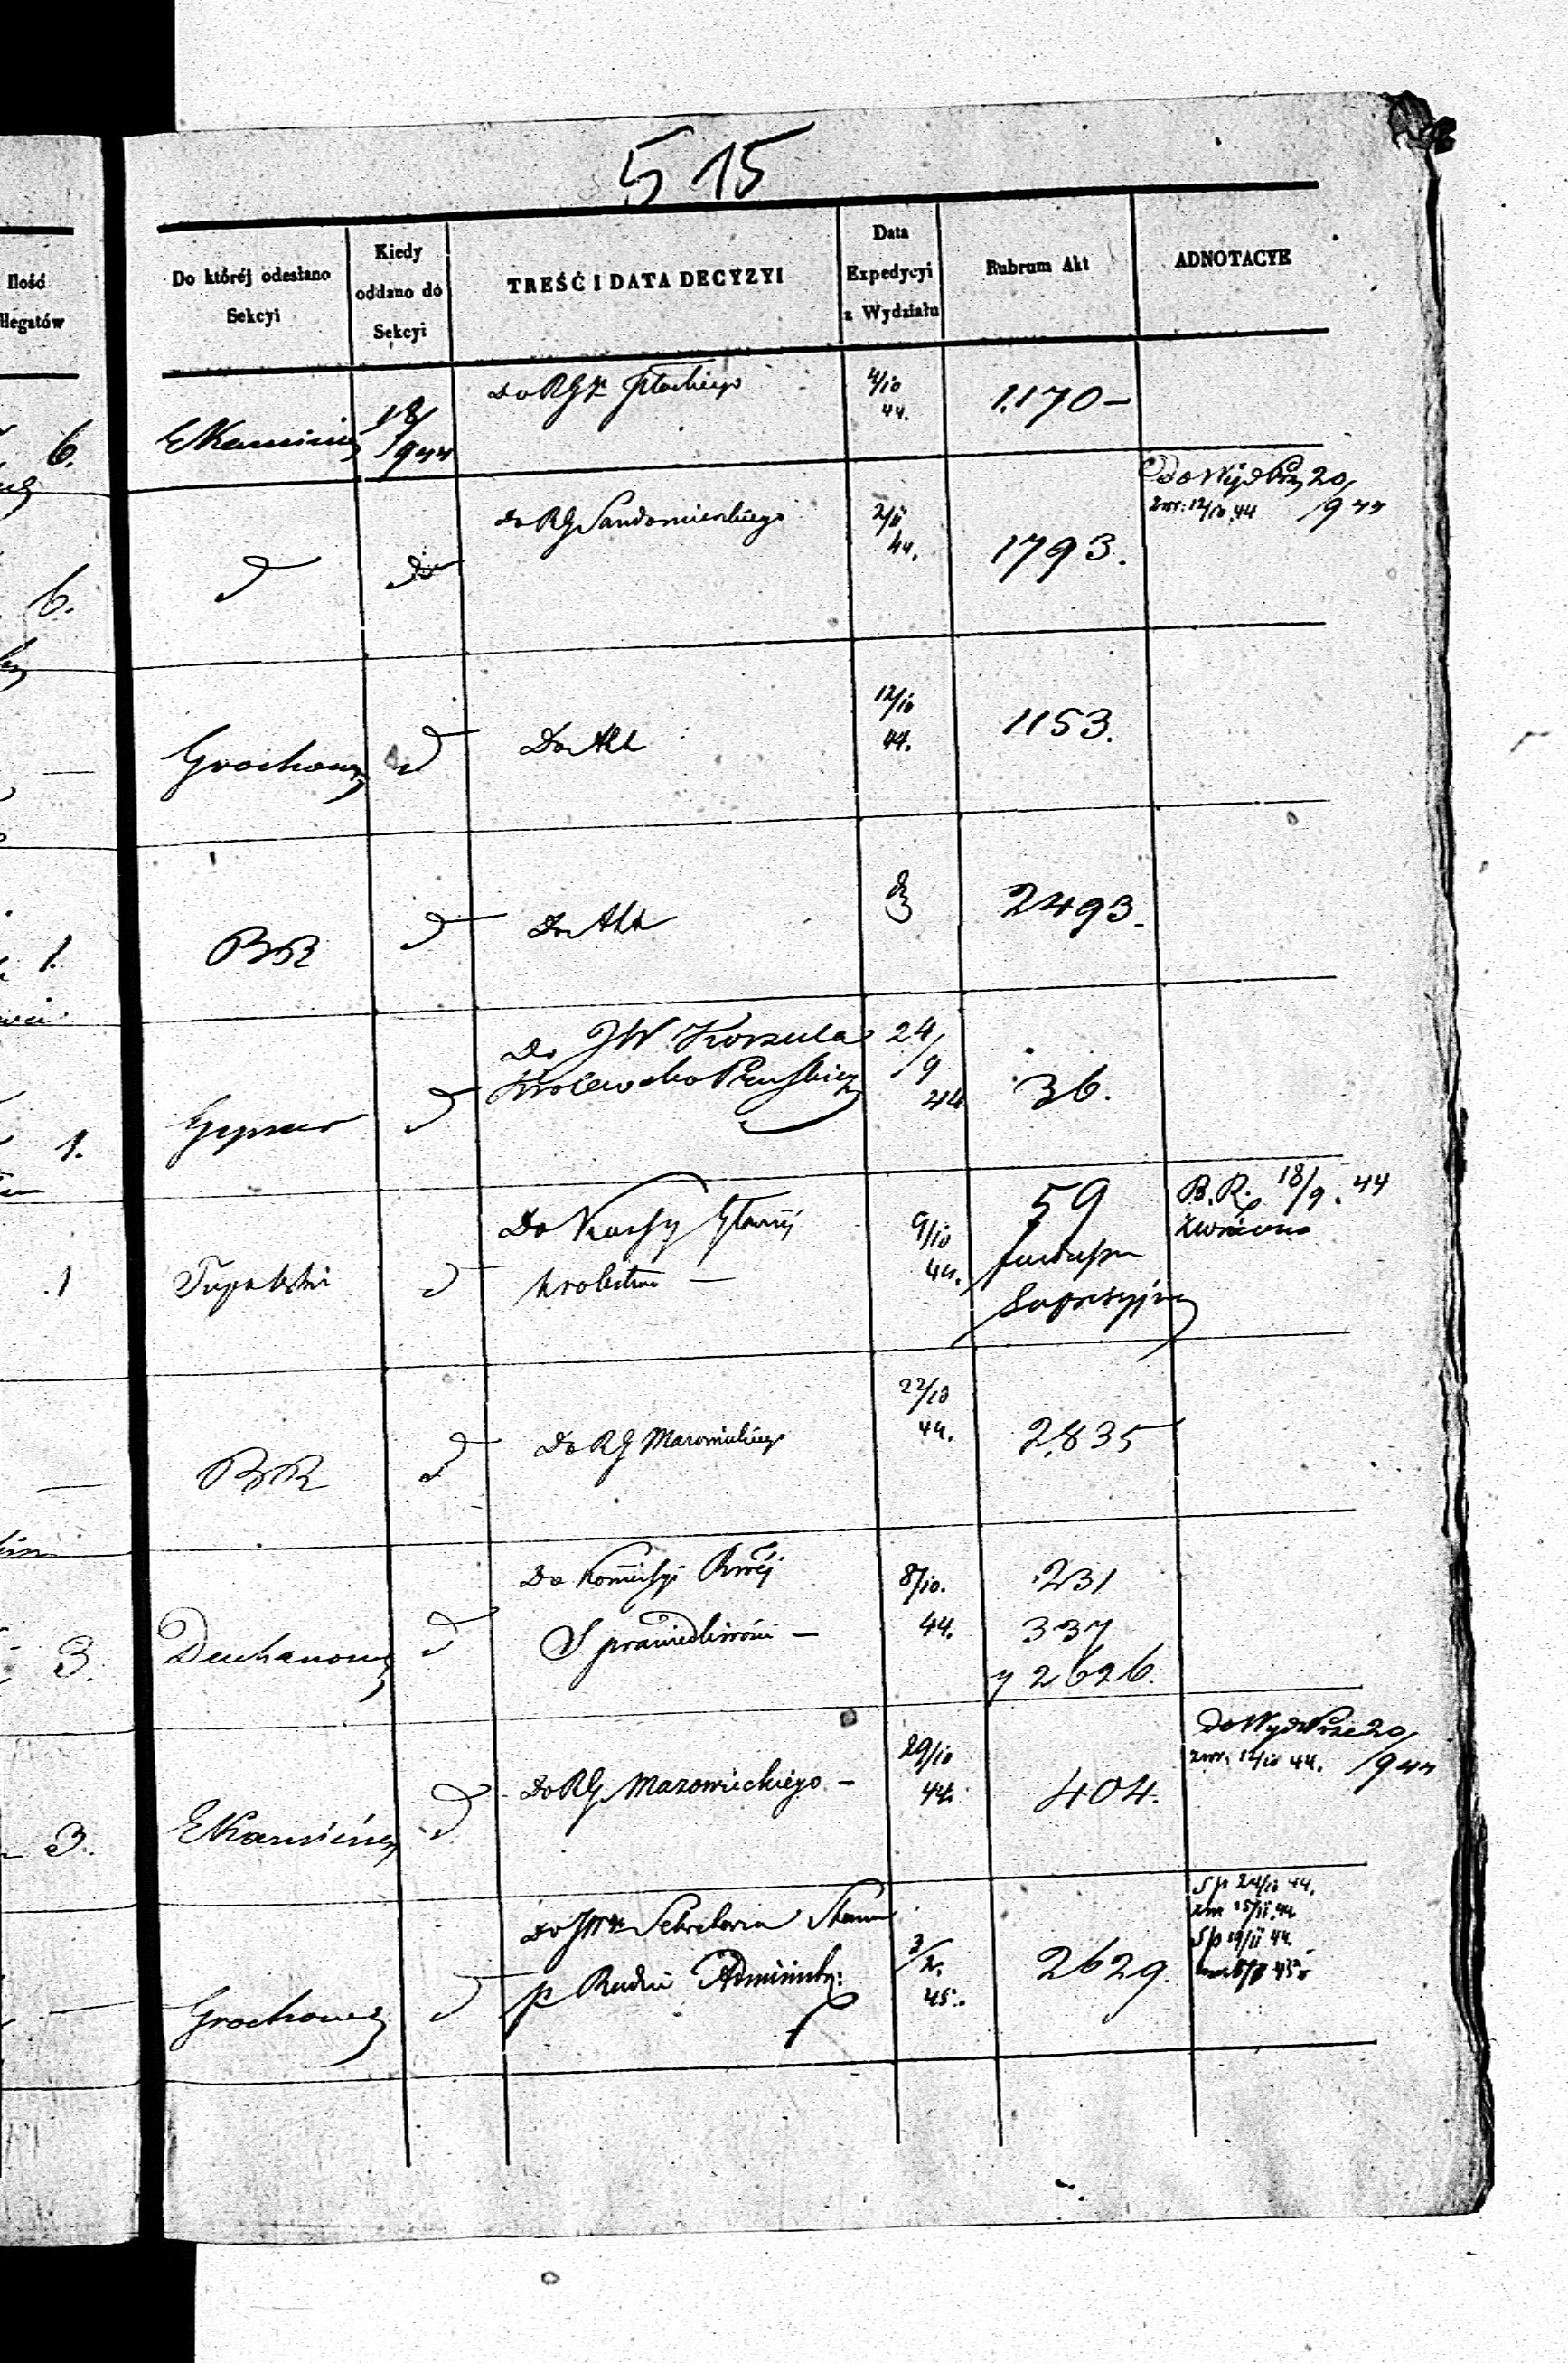 515
Ilość
llegatów
Do któréj odesłano
Sekcyi
Kiedy
oddano do
Sekcyi
TREŚĆ I DATA DECYZYI
Data
Expedycyi
z Wydziału
Rubrum Akt
ADNOTACYE
6.
18/9 44
Do RG Płockiego
4/10
44.
1,170 –
6.
d
do
do RG Sandomierskiego
2/11
44.
1793.
20/9 44
zwr: 12/10 44
Grochows
d
Do Akt
12/10
44.
1153.
1.
BR
d
Do Akt
do
2493.
1.
d
Do JW Konsula
Królewsko Pruskiego
24/9
44
36.
.1
Tupalski
d
Do Kassy Głównéj
Królestwa —
9/10
44.
59
B. R. 18/9. 44
zwrócono
—
BR
d
Do RG Mazowieckiego
22/10
44.
2,835
3.
d
Do Kommissyi Rwéj
Sprawiedliwości —
8/10.
44.
231
337
y 2626.
3.
d
Do RG Mazowieckiego –
29/10
44.
404.
20/9 44
zwr: 12/10 44.
—
Grochows
d
Do JW Sekretarza Stanu
p Radzie Administr:
3/2.
45.
2629.
Sp 24/10 44.
zwr 15/11 44
Sp 19/11 44